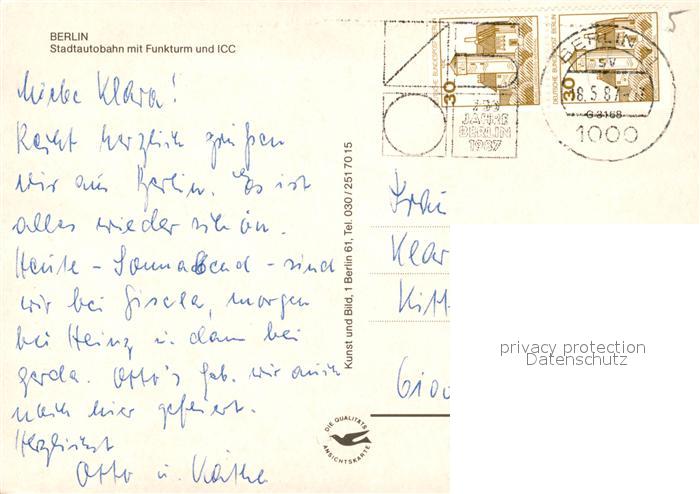 BERLIN
Stadtautobahn mit Funkturm und ICC
Liebe Klara!
Recht herzlich grüßen
wir aus Berlin. Es ist
alles wieder schön.
Heute - Sonnabend - sind
wir bei Gisela, morgen
bei Heinz u. dann bei
Gerda. Otto's Geb. wir auch
noch hier gefeiert.
Herzlichst
Otto u. Käthe
Kunst und Bild, 1 Berlin 61, Tel. 030/251 70 15
DIE QUALITÄTS
ANSICHTSKARTE
30
DEUTSCHE BUNDESPOST BERLIN
30
DEUTSCHE BUNDESPOST BERLIN
750
JAHRE
BERLIN
1987
BERLIN
sv
8.5.87
1000
5
Frau
Klar
Kitt
6100
privacy protection
Datenschutz